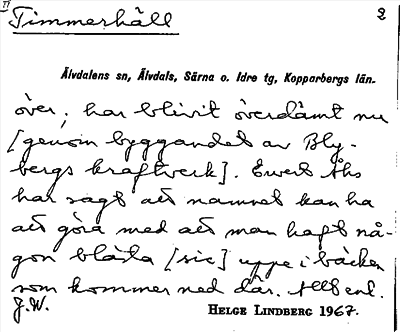 Timmerhäll 2
Älvdalens sn, Älvdals, Särna o. Idre tg, Kopparbergs län.
över; har blivit överdämt nu
[genom byggandet av Bly-
bergs kraftverk]. Evert Åhs
har sagt att namnet kan ha
att göra med att man haft nå-
gon blåsta [sic] uppe i bäcken
som kommer ned där. Allt enl.
J.W. HELGE LINDBERG 1967.